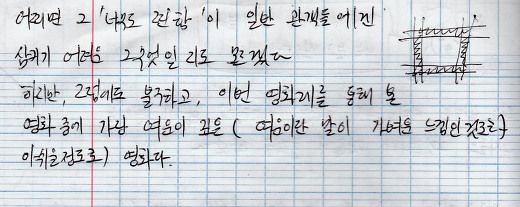 어쩌면 그 '너무도 진함'이 일반 관객들에겐
삼키기 어려운 그 무엇일 지도 모르겠다
하지만, 그럼에도 불구하고, 이번 영화제를 통해 본
영화 중에 가장 여운이 깊은 ( 여운이란 말이 가벼운 느낌인 것 같은
아쉬울 정도로) 영화다.